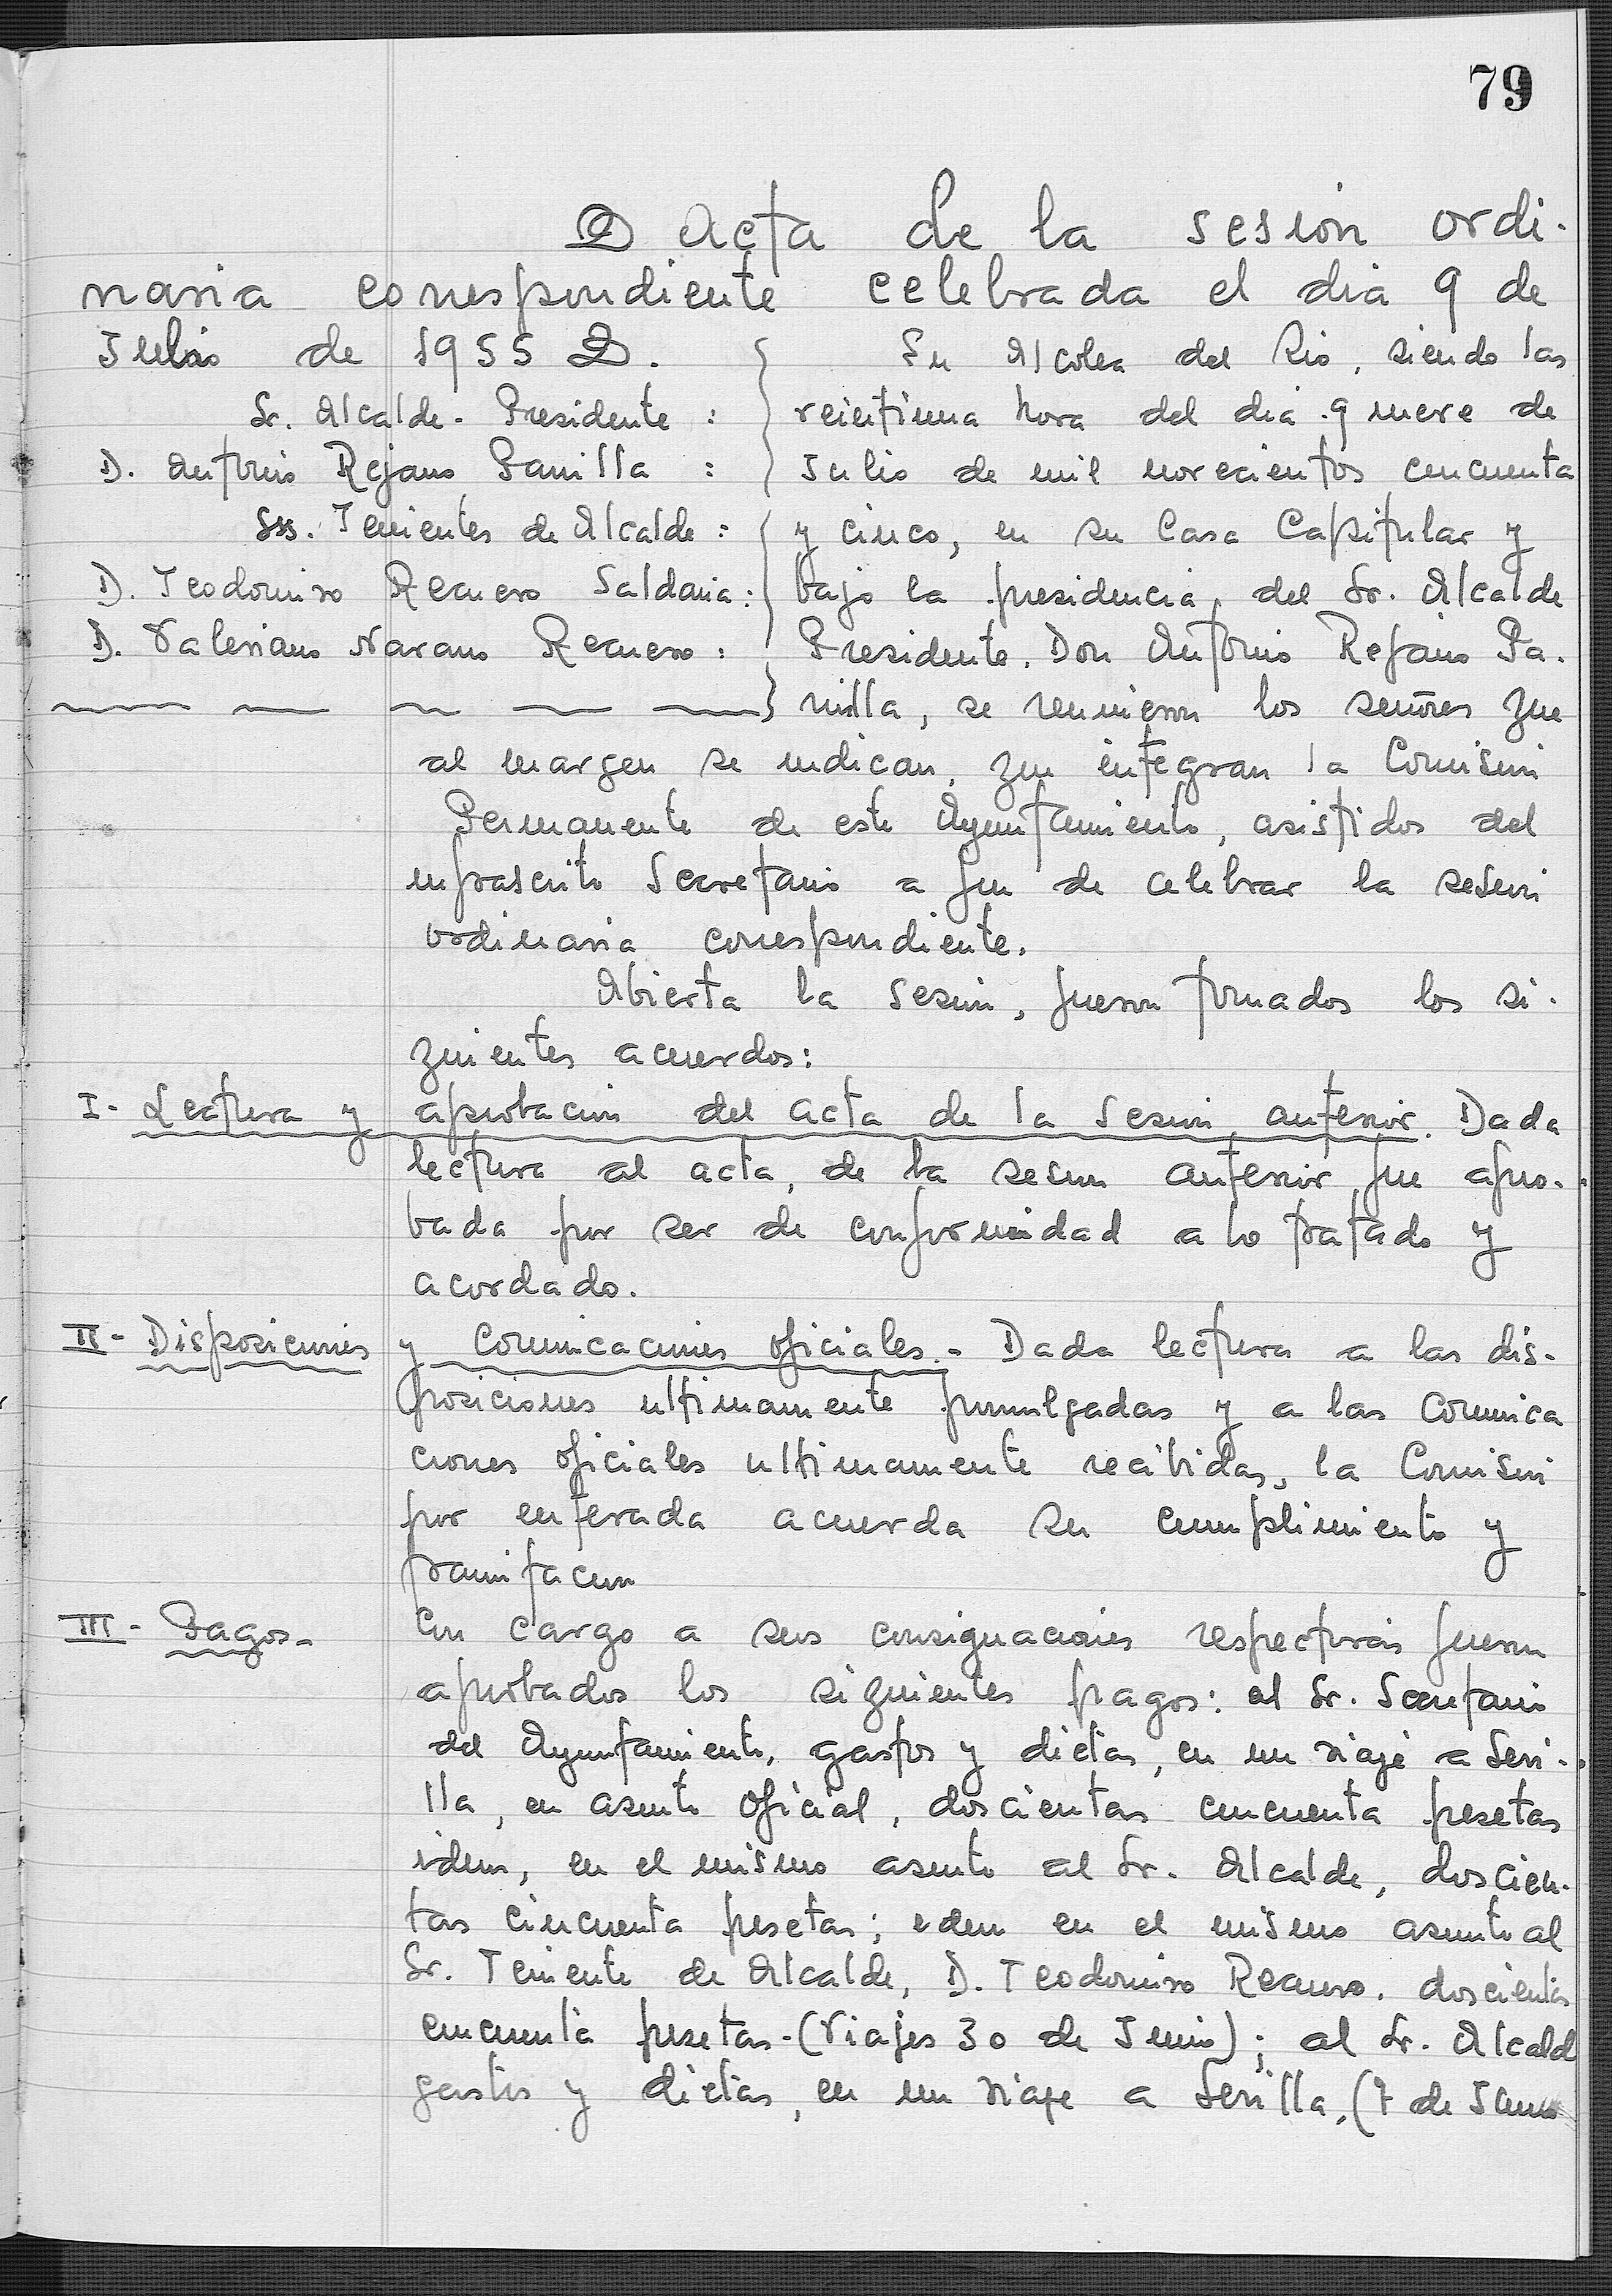 79
Acta de la sesión ordi-
naria correspondiente celebrada el dia 9 de
Julio de 1955.
Sr. Alcalde-Presidente:
D. Antonio Rejano Panilla:
Srs. Tenientes de Alcalde:
D. Teodomiro Recuero Saldaña:
D. Valeriano Narano Recuero:
En Alcolea del Rio, siendo las
veintiuna hora del dia 9 nueve de
Julio de mil novecientos cincuenta
y cinco, en su Casa Capitular y
bajo la presidencia, del Sr. Alcalde
Presidente, Don Antonio Rejano Pa-
nilla, se reunieron los señores que
al margen se indican, que integran la Comisión
Permanente de este Ayuntamiento, asistidos del
infrascrito Secretario a fin de celebrar la sesion
ordinaria correspondiente.
Abierta la sesion, fueron tomados los si-
guientes acuerdos:
I- Lectura y aprobacion del acta de la sesion anterior. Dada
lectura al acta, de la sesion anterior fue apro-
bada por ser de conformidad a lo tratado y
acordado.
II- Disposiciones y Comunicaciones oficiales.- Dada lectura a las dis-
posiciones ultimamente promulgadas y a las comunica
ciones oficiales ultimamente recibidas, la Comision
por enterada acuerda su cumplimiento y
tramitacion
III- Pagos.- Con cargo a sus consignaciones respectivas fueron
aprobados los siguientes pagos: al Sr. Secretario
del Ayuntamiento, gastos y dietas, en un viaje a Sevi-
lla, en asunto oficial, doscientas cincuenta pesetas
idem, en el mismo asunto al Sr. Alcalde, doscien-
tas cincuenta pesetas; idem en el mismo asunto al
Sr. Teniente de Alcalde, D. Teodomiro Recuero, doscientas
cincuenta pesetas-(Viajes 30 de Junio); al Sr. Alcald
gastos y dietas, en un viaje a Sevilla, (7 de